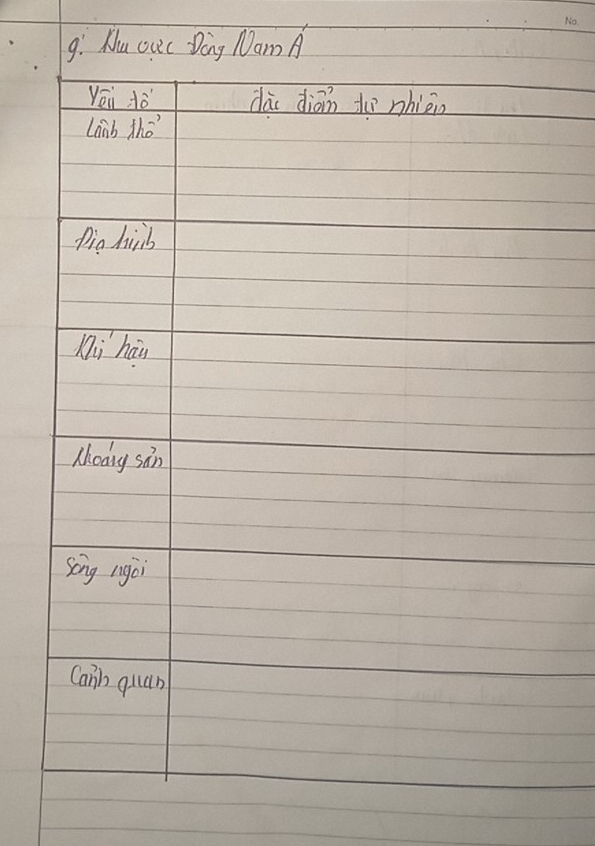 No.
g. Khu vực Đông Nam Á
Yếu tố đặc điểm tự nhiên
Lãnh thổ
Địa hình
Khí hậu
Khoáng sản
Sông ngòi
Cảnh quan